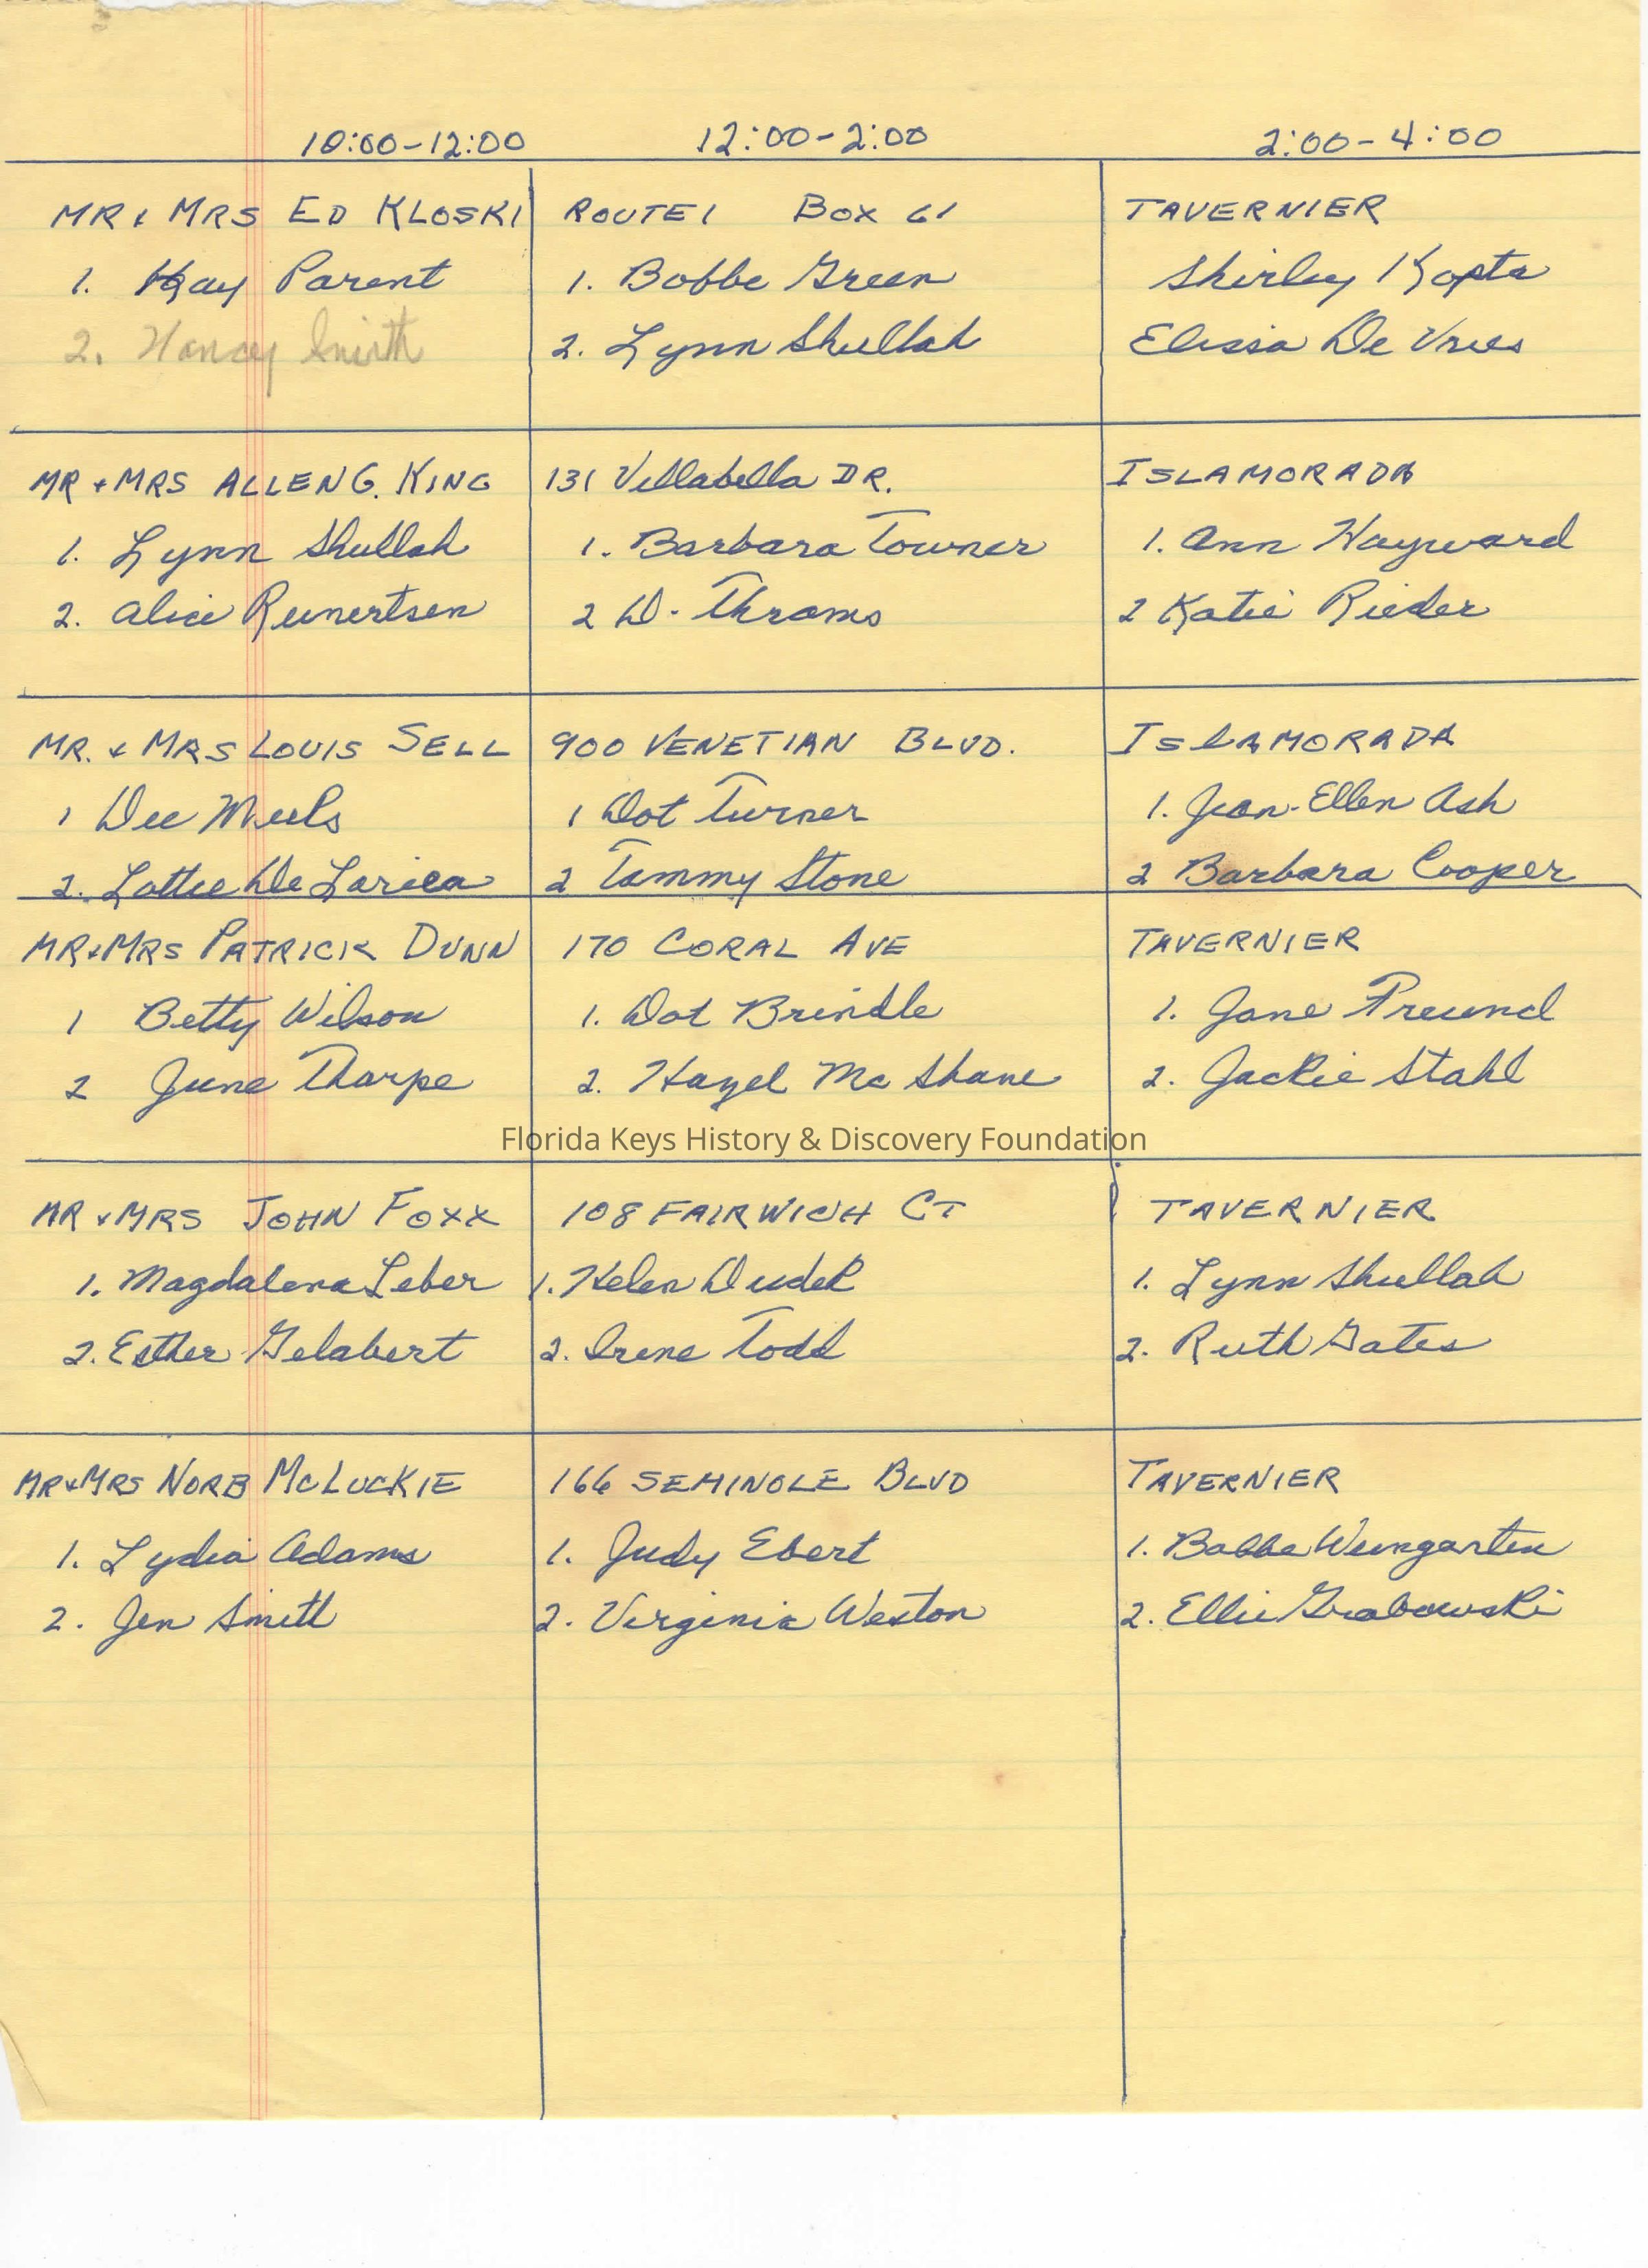 10:00-12:00 12:00-2:00 2:00-4:00
MR & MRS ED KLOSKI ROUTE 1 BOX 61 TAVERNIER
1. Kay Parent 1. Bobbe Green Shirley Kopta
2. Nancy Smith 2. Lynn Shullah Elissa De Vries
MR + MRS ALLEN G. KING 131 Villabella DR. ISLAMORADA
1. Lynn Shullah 1. Barbara Towner 1. Ann Hayward
2. Alice Reinertsen 2 D. Thrams 2 Katie Rieder
MR. & MRS LOUIS SELL 900 VENETIAN BLVD. ISLAMORADA
1 Dee Meeks 1 Dot Turner 1. Jean-Ellen Ash
2. Lottie De Larica 2 Tammy Stone 2 Barbara Cooper
MR & MRS PATRICK DUNN 170 CORAL AVE TAVERNIER
1 Betty Wilson 1. Dot Brindle 1. Jane Freund
2 June Tharpe 2. Hazel Mc Shane 2. Jackie Stahl
Florida Keys History & Discovery Foundation
MR & MRS JOHN FOXX 108 FAIRWICH CT TAVERNIER
1. Magdalena Leber 1. Helen Dudek 1. Lynn Shullah
2. Esther Gelabert 2. Irene Todd 2. Ruth Gates
MR & MRS NORB MCLUCKIE 166 SEMINOLE BLVD TAVERNIER
1. Lydia Adams 1. Judy Ebert 1. Bobbe Weingarten
2. Jen Smith 2. Virginia Weston 2. Ellie Grabowski